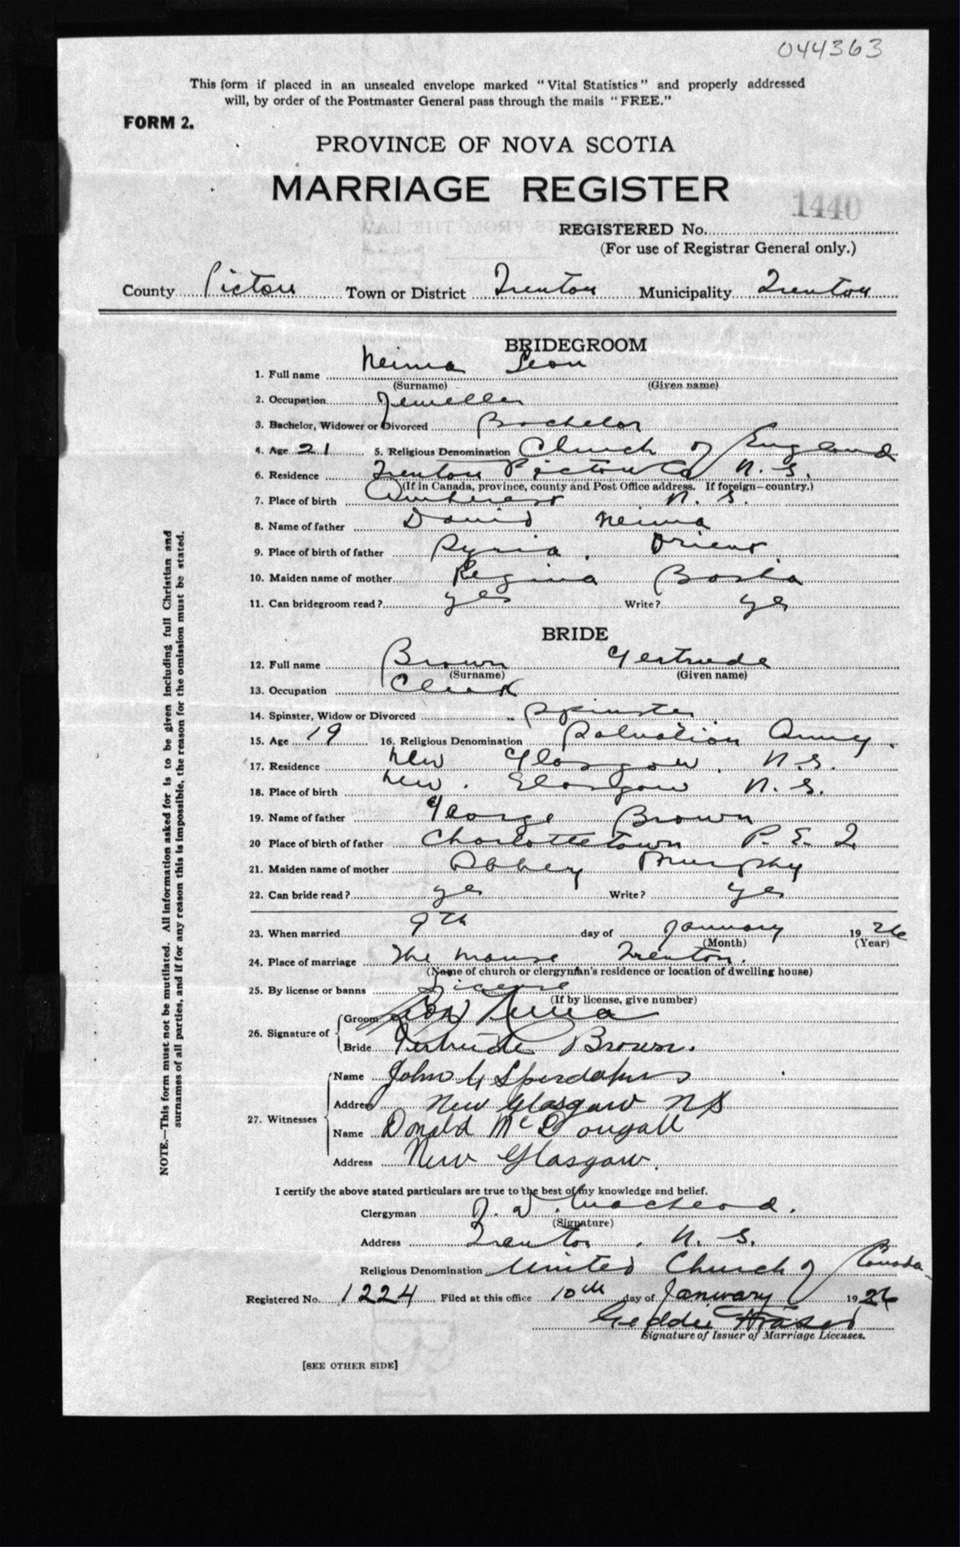 044363
This form if placed in an unsealed envelope marked "Vital Statistics" and properly addressed
will, by order of the Postmaster General pass through the mails "FREE."
FORM 2.
PROVINCE OF NOVA SCOTIA
MARRIAGE REGISTER
1440
REGISTERED No.
(For use of Registrar General only.)
County Pictou Town or District Trenton Municipality Trenton
BRIDEGROOM
1. Full name Neima Leon
(Surname) (Given name)
2. Occupation Jeweller
3. Bachelor, Widower or Divorced Bachelor
4. Age 21 5. Religious Denomination Church of England
6. Residence Trenton Pictou Co N. S.
(If in Canada, province, county and Post Office address. If foreign—country.)
7. Place of birth Amherst N. S.
8. Name of father David Neima
9. Place of birth of father Syria. Orient.
10. Maiden name of mother Regina Bosha
11. Can bridegroom read? yes Write? ye
BRIDE
12. Full name Brown Gertrude
(Surname) (Given name)
13. Occupation Clerk
14. Spinster, Widow or Divorced Spinster
15. Age 19 16. Religious Denomination Salvation Army.
17. Residence New Glasgow. N.S.
18. Place of birth New. Glasgow N. S.
19. Name of father George Brown
20 Place of birth of father Charlottetown P. E. I
21. Maiden name of mother Abbey Murphy
22. Can bride read? ye Write? ye
23. When married 9th day of January 1926
(Month) (Year)
24. Place of marriage The Manse Trenton.
(Name of church or clergyman's residence or location of dwelling house)
25. By license or banns License
(If by license, give number)
26. Signature of Groom Leon Neima
Bride Gertrude Brown.
27. Witnesses
Name John
Address New Glasgow NS
Name Donald McDougall
Address New Glasgow.
I certify the above stated particulars are true to the best of my knowledge and belief.
Clergyman MacLeod.
(Signature)
Address Trenton. N. S.
Religious Denomination United Church of Canada
Registered No. 1224 Filed at this office 10th day of January 1926
Geddie Fraser
Signature of Issuer of Marriage Licenses.
[SEE OTHER SIDE]
NOTE.—This form must not be mutilated. All information asked for is to be given including full Christian and
surnames of all parties, and if for any reason this is impossible, the reason for the omission must be stated.